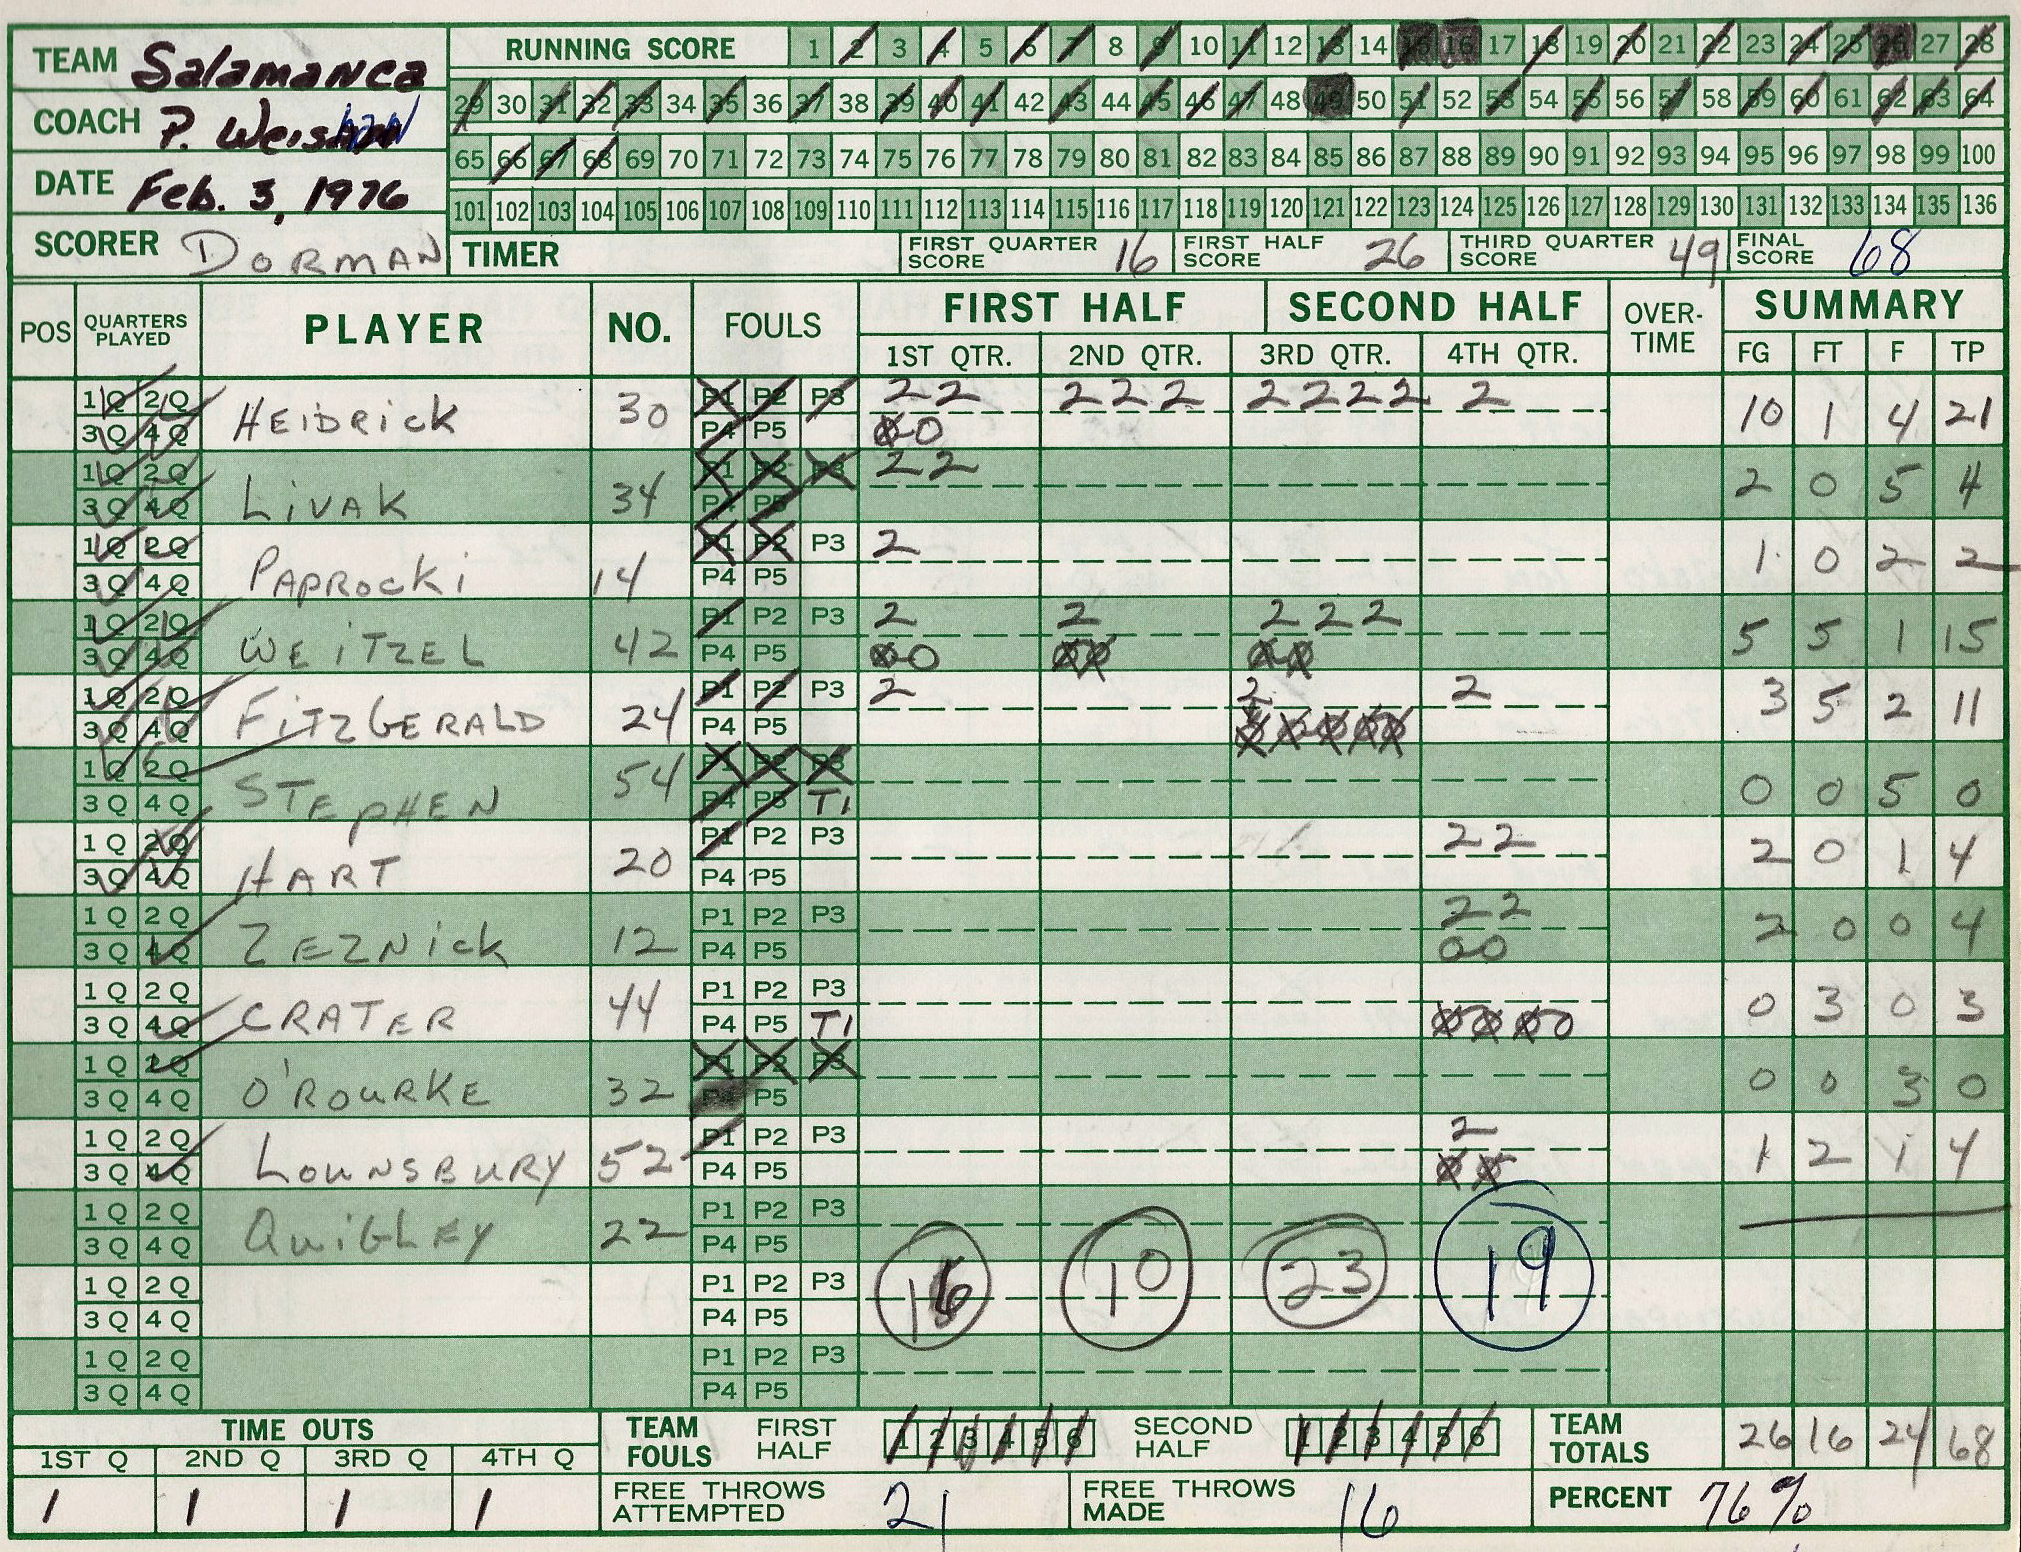 TEAM Salamanca RUNNING SCORE 1 2 3 4 5 6 7 8 9 10 11 12 13 14 15 16 17 18 19 20 21 22 23 24 25 26 27 28
COACH P. 29 30 31 32 33 34 35 36 37 38 39 40 41 42 43 44 45 46 47 48 49 50 51 52 53 54 55 56 57 58 59 60 61 62 63 64
DATE Feb. 3, 1976 65 66 67 68 69 70 71 72 73 74 75 76 77 78 79 80 81 82 83 84 85 86 87 88 89 90 91 92 93 94 95 96 97 98 99 100
101 102 103 104 105 106 107 108 109 110 111 112 113 114 115 116 117 118 119 120 121 122 123 124 125 126 127 128 129 130 131 132 133 134 135 136
SCORER DORMAN TIMER FIRST QUARTER SCORE 16 FIRST HALF SCORE 26 THIRD QUARTER SCORE 49 FINAL SCORE 68
POS QUARTERS PLAYED PLAYER NO. FOULS FIRST HALF SECOND HALF OVER-TIME SUMMARY
1ST QTR. 2ND QTR. 3RD QTR. 4TH QTR. FG FT F TP
1Q 2Q HEIDRICK 30 P1 P2 P3 2 2 2 2 2 2 2 2 2 2 10 1 4 21
3Q 4Q P4 P5 0 0
1Q 2Q LIVAK 34 P1 P2 P3 2 2 2 0 5 4
3Q 4Q P4 P5
1Q 2Q PAPROCKI 14 P1 P2 P3 2 1 0 2 2
3Q 4Q P4 P5
1Q 2Q WEITZEL 42 P1 P2 P3 2 2 2 2 2 5 5 1 15
3Q 4Q P4 P5 0 0 0 0 0 0
1Q 2Q FITZGERALD 24 P1 P2 P3 2 2 2 3 5 2 11
3Q 4Q P4 P5 0 0 0 0 0
1Q 2Q STEPHEN 54 P1 P2 P3 0 0 5 0
3Q 4Q P4 P5 T1
1Q 2Q HART 20 P1 P2 P3 2 2 2 0 1 4
3Q 4Q P4 P5
1Q 2Q ZEZNICK 12 P1 P2 P3 2 2 2 0 0 4
3Q 4Q P4 P5 0 0
1Q 2Q CRATER 44 P1 P2 P3 0 3 0 3
3Q 4Q P4 P5 T1 0 0 0 0
1Q 2Q O'ROURKE 32 P1 P2 P3 0 0 3 0
3Q 4Q P4 P5
1Q 2Q LOUNSBURY 52 P1 P2 P3 2 1 2 1 4
3Q 4Q P4 P5 0 0
1Q 2Q QUIGLEY 22 P1 P2 P3
3Q 4Q P4 P5
1Q 2Q P1 P2 P3 16 10 23 19
3Q 4Q P4 P5
1Q 2Q P1 P2 P3
3Q 4Q P4 P5
TIME OUTS TEAM FOULS FIRST HALF 1 2 3 4 5 6 SECOND HALF 1 2 3 4 5 6 TEAM TOTALS 26 16 24 68
1ST Q 2ND Q 3RD Q 4TH Q
1 1 1 1 FREE THROWS ATTEMPTED 21 FREE THROWS MADE 16 PERCENT 76%